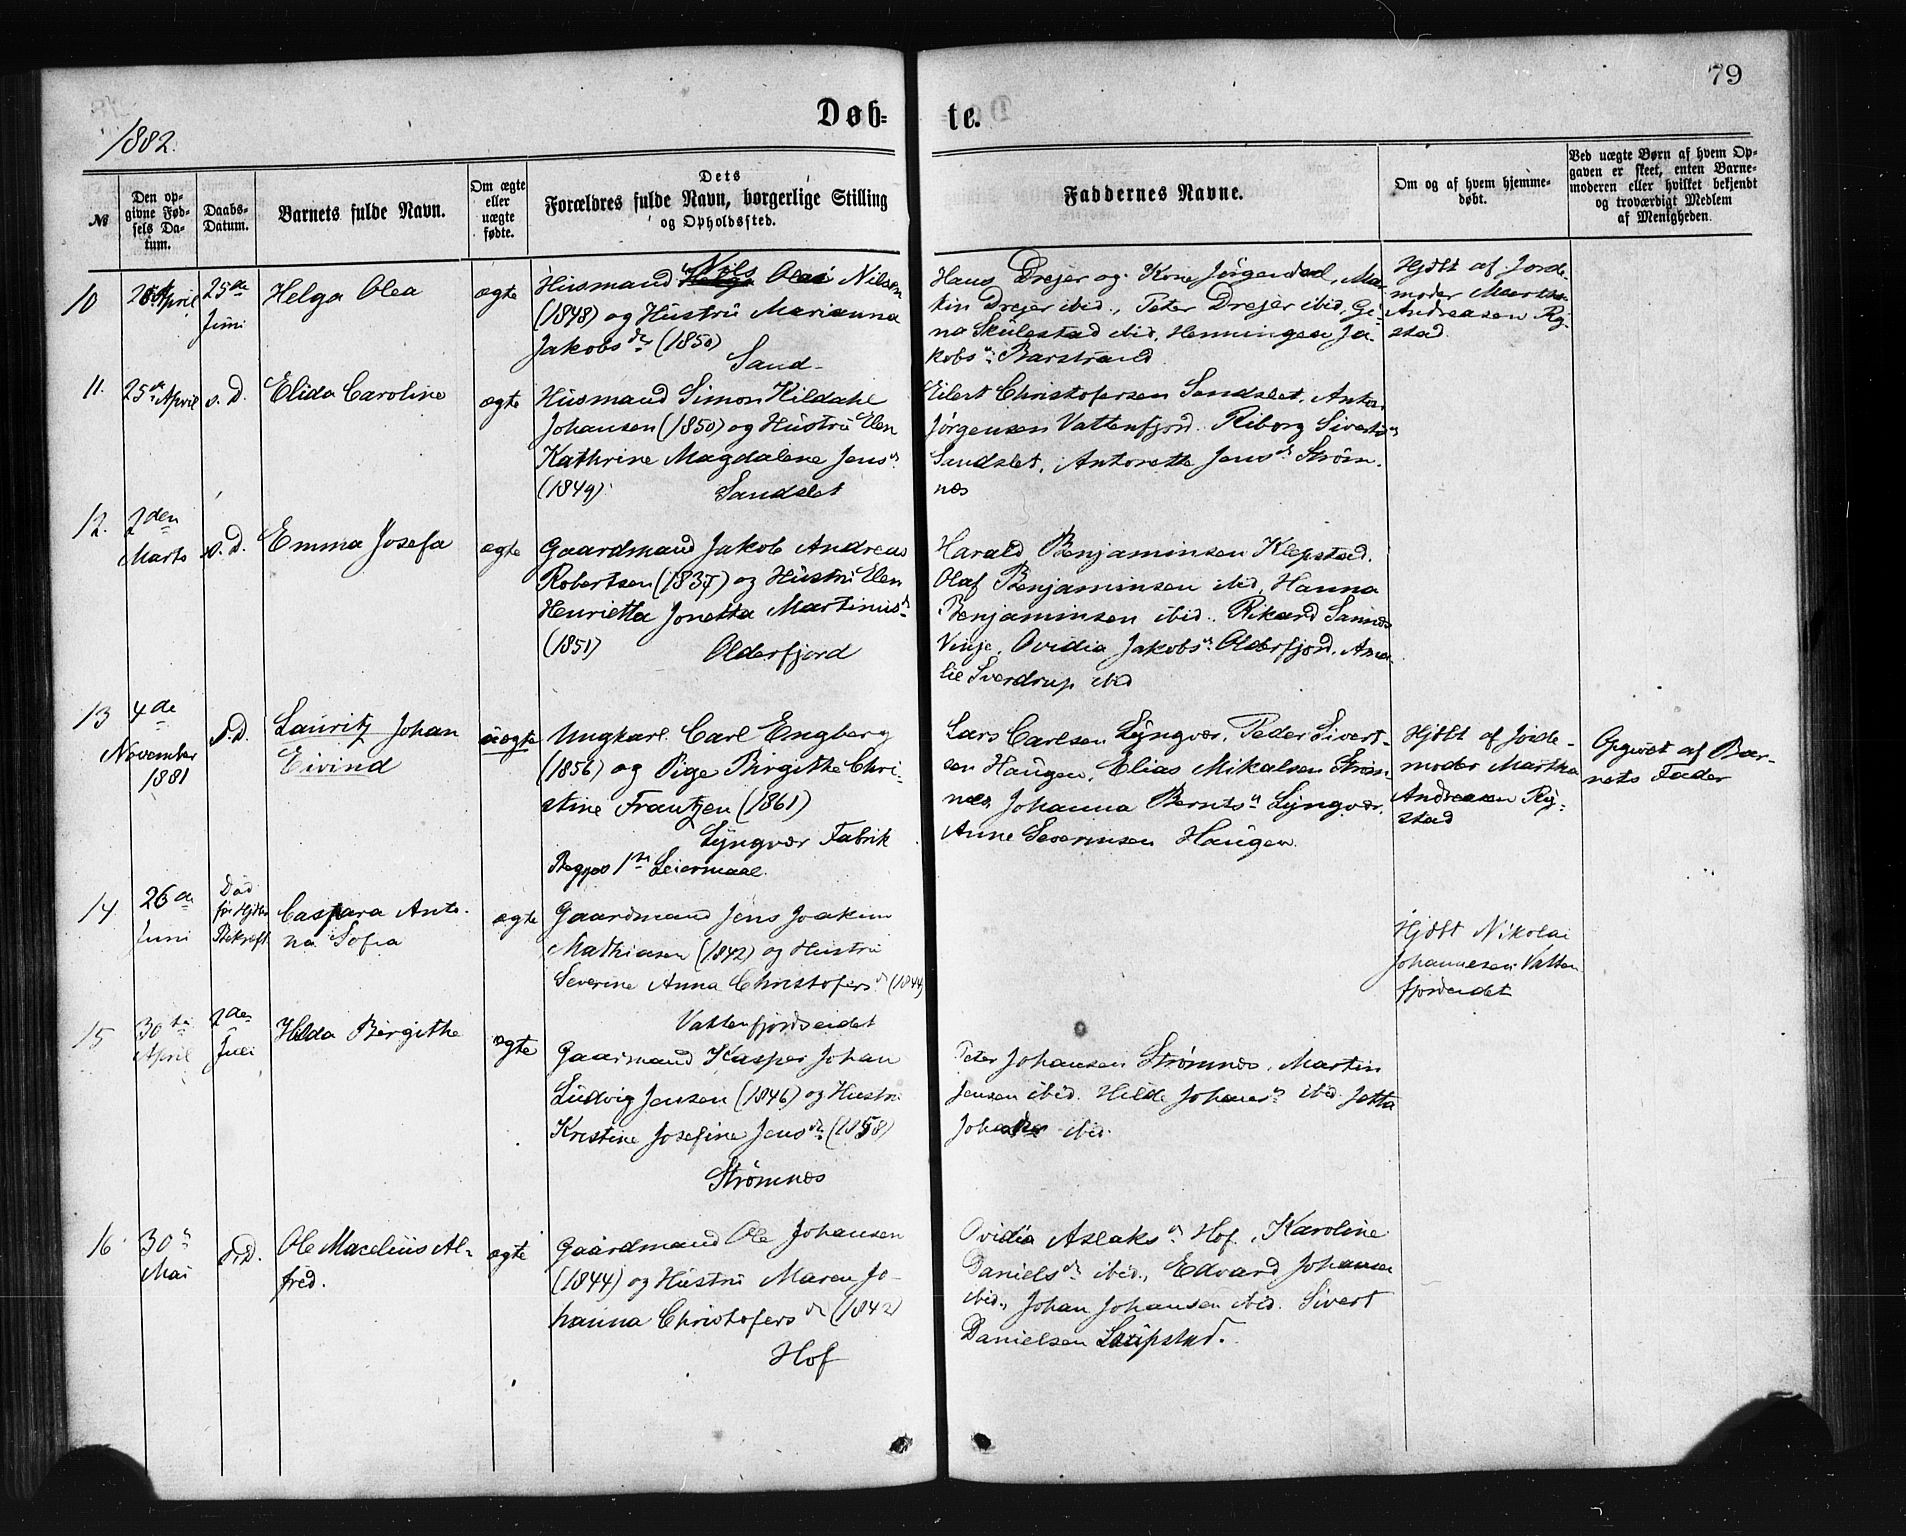 79
Døb= te.
1882.
№
Den op-
givne Fød-
sels Da-
tum.
Daabs-
Datum.
Barnets fulde Navn.
Om ægte
eller
uægte
fødte.
Dets
Forældres fulde Navn, borgerlige Stilling
og Opholdssted.
Faddernes Navne.
Om og af hvem hjemme-
døbt.
Ved uægte Børn af hvem Op-
gaven er skeet, enten Barne-
moderen eller hvilket bekjendt
og troværdigt Medlem
af Menigheden.
10
April
25de
Juni
Helga Olea
ægte
Husmand Nils Olai Nilsen
(1848) og Hustru Marianna
Jakobsdr (1850)
Sand
Hans Drejer og Kone Jörgen
kin Drejer ibid., Peter Drejer ibid. Gi-
na Skulestad ibid, Henningea Ja-
kobsdr Barstrand
Hjdbt af Jorde-
moder Martha
Andreasen Ry-
stad
11.
25de April
s. D.
Elida Caroline
ægte
Husmand Simon Kildahl
Johansen (1850) og Hustru Elen
Kathrine Magdalene Jensdr
(1849)
Sandslet
Eilert Christofersen Sandslet, Anton
Jörgensen Vattenfjord. Riborg Sivertsdr
Sandslet, Antonette Jensdr Ström-
nes
12.
2den
Marts
s. D.
Emma Josefa
ægte
Gaardmand Jakob Andreas
Robertsen (1837) og Hustru Elen
Henrietta Jonetta Martinusdr
(1851)
Olderfjord
Harald Benjaminsen Klepstad.
Olaf Benjaminsen ibid, Hanna
Benjaminsen ibid., Rikard Sannes
Vinje, Ovidia Jakobsdr Olderfjord, Ama-
lie Sverdrup ibid
13
4de
November
1881
s. D.
Lauritz Johan
Eivind
uægte
Ungkarl Carl Engberg
(1856) og Pige Birgithe Chri-
stine Frantzen (1861)
Lyngvær Fabrik
Begges 1ste Leiermaal.
Lars Carlsen Lyngvær, Peder Sivert-
sen Haugen, Elias Mikalsen Ström-
nes, Johanna Berntsdr Lyngvær.
Anne Severinsen Haugen.
Hjdbt af Jorde-
moder Martha
Andreasen Ry-
stad
Opgivet af Bar-
nets Fader
14
26de
Juni
Död
før Hjdbs
Bekræft
Caspara Anto-
na Sofia
ægte
Gaardmand Jens Joakim
Mathiasen (1842) og Hustru
Severine Anna Christofersdr (1844)
Vattenfjordseidet
Hjdbt Nikolai
Johannesen Vatten
fjordeidet
15
30te
April
2den
Juli
Hilda Birgithe
ægte
Gaardmand Kasper Johan
Ludvig Jensen (1846) og Hustru
Kristine Josefine Jensdr (1858)
Strömnes
Peter Johansen Strömnes, Martin
Jensen ibid. Hilde Johansdr ibid Jetta
ibid.
16
30te
Mai
s. D.
Ole Marelius Al-
fred.
ægte
Gaardmand Ole Johansen
(1844) og Hustru Maren Jo-
hanna Christofersdr (1842)
Hof
Ovidia Aslaksdr Hof, Karoline
Danielsdr ibid., Edvard Johansen
ibid., Johan Johansen ibid. Sivert
Danielsen Laupstad.